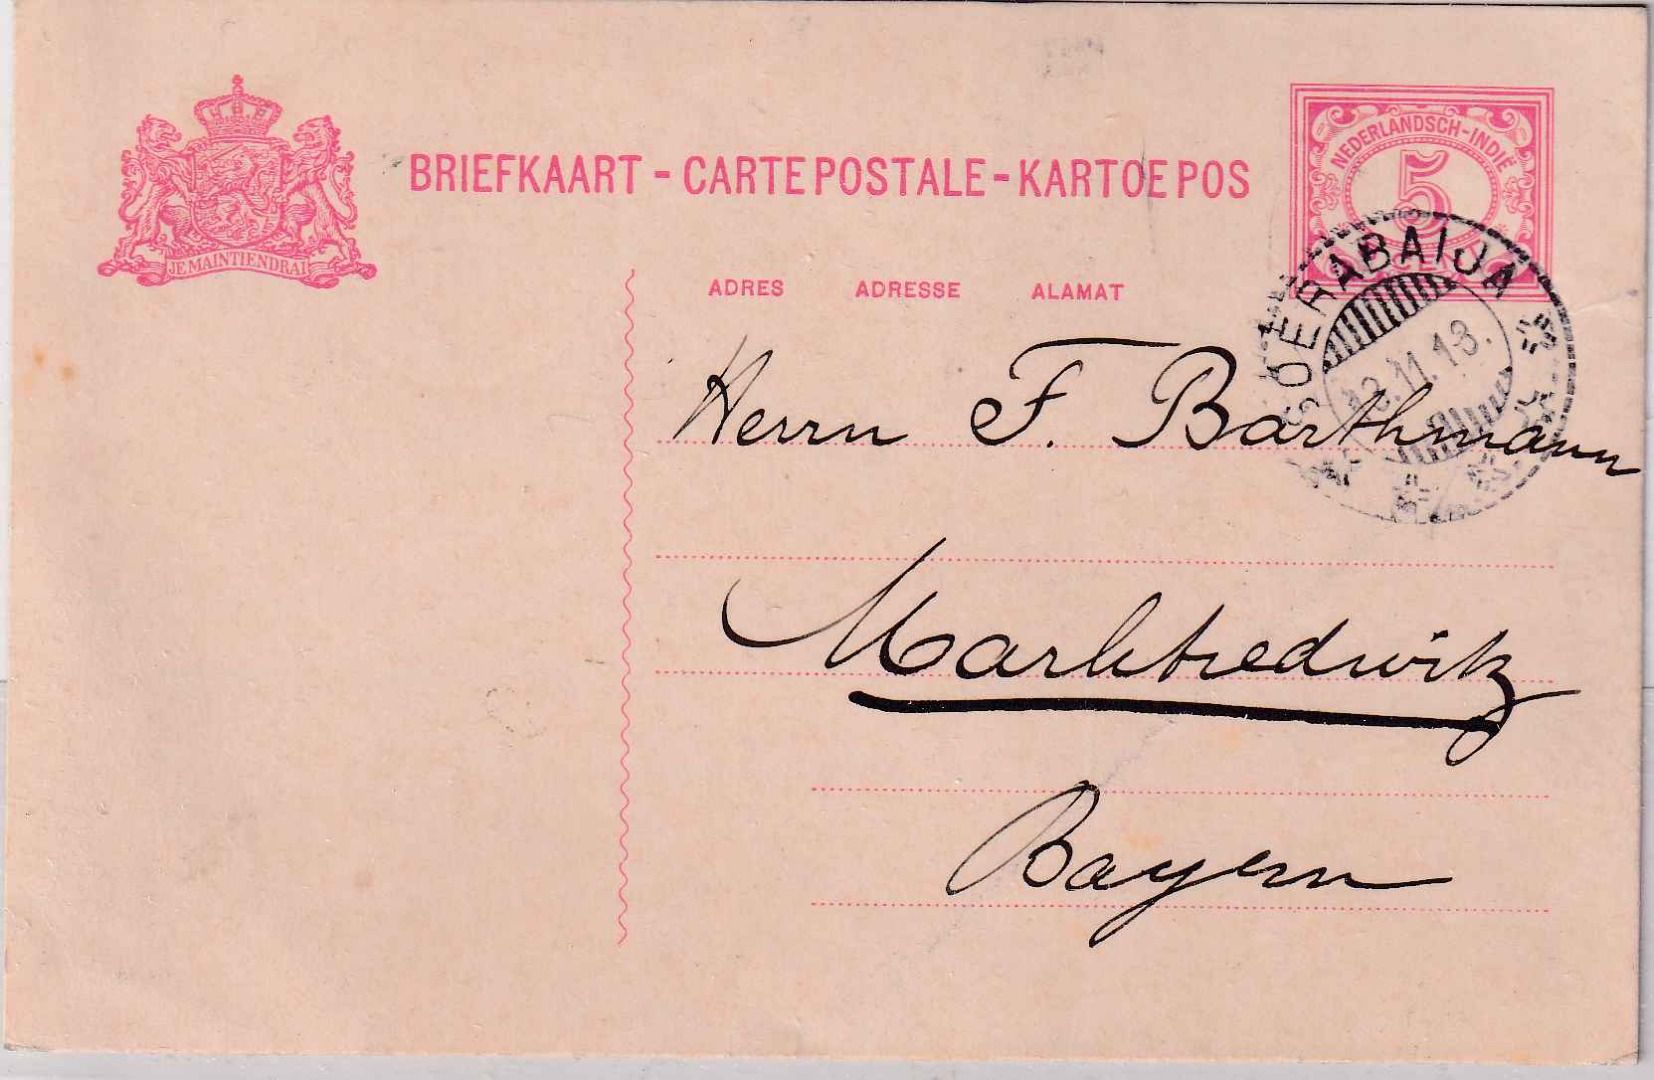 BRIEFKAART - CARTE POSTALE - KARTOE POS
JE MAINTIENDRAI
NEDERLANDSCH-INDIË
5
SOERABAIJA
3.11.13.
ADRES ADRESSE ALAMAT
Herrn F. Barthmann
Marktredwitz
Bayern